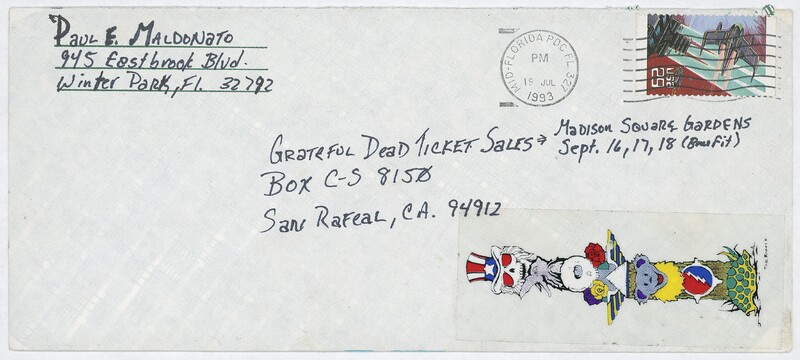 Paul E. Maldonato
945 Eastbrook Blvd.
Winter Park, Fl. 32792
MID-FLORIDA PDC FL 327
PM
19 JUL
1993
29
USA
Grateful Dead Ticket Sales → Madison Square Gardens
Sept. 16, 17, 18 (Benefit)
Box C-S 8150
San Rafeal, CA. 94912